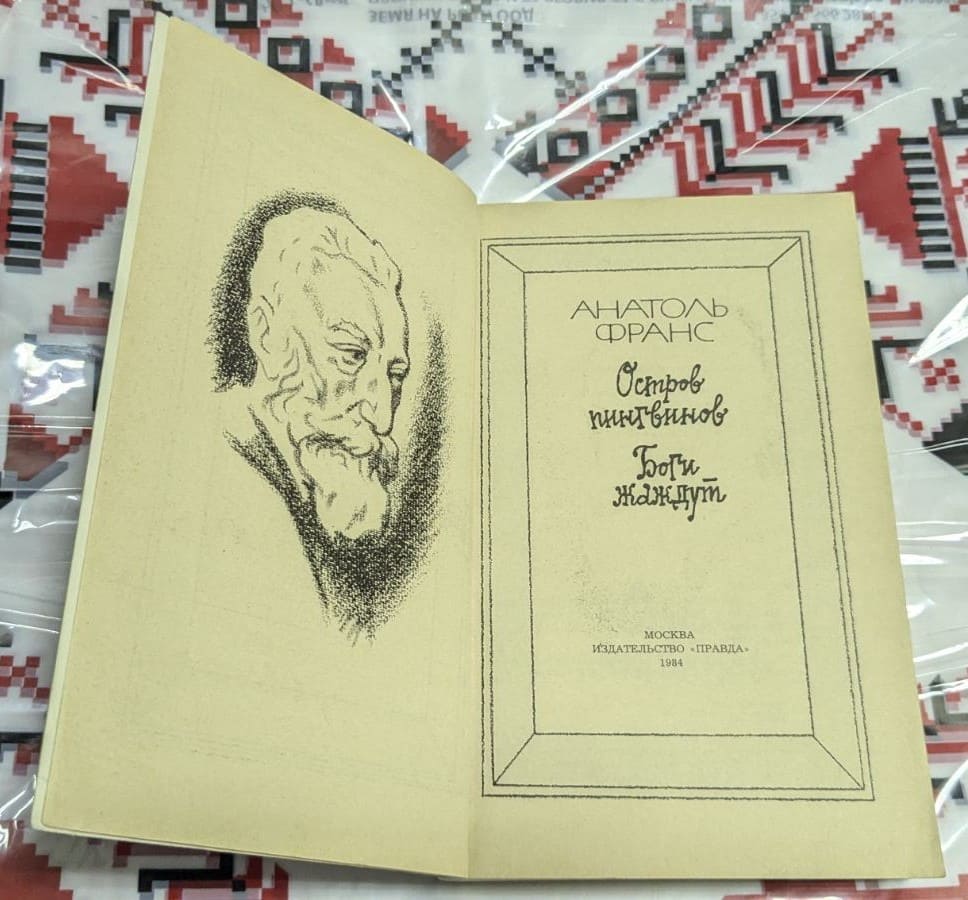 АНАТОЛЬ
ФРАНС
Остров
пингвинов
Боги
жаждут
МОСКВА
ИЗДАТЕЛЬСТВО «ПРАВДА»
1984